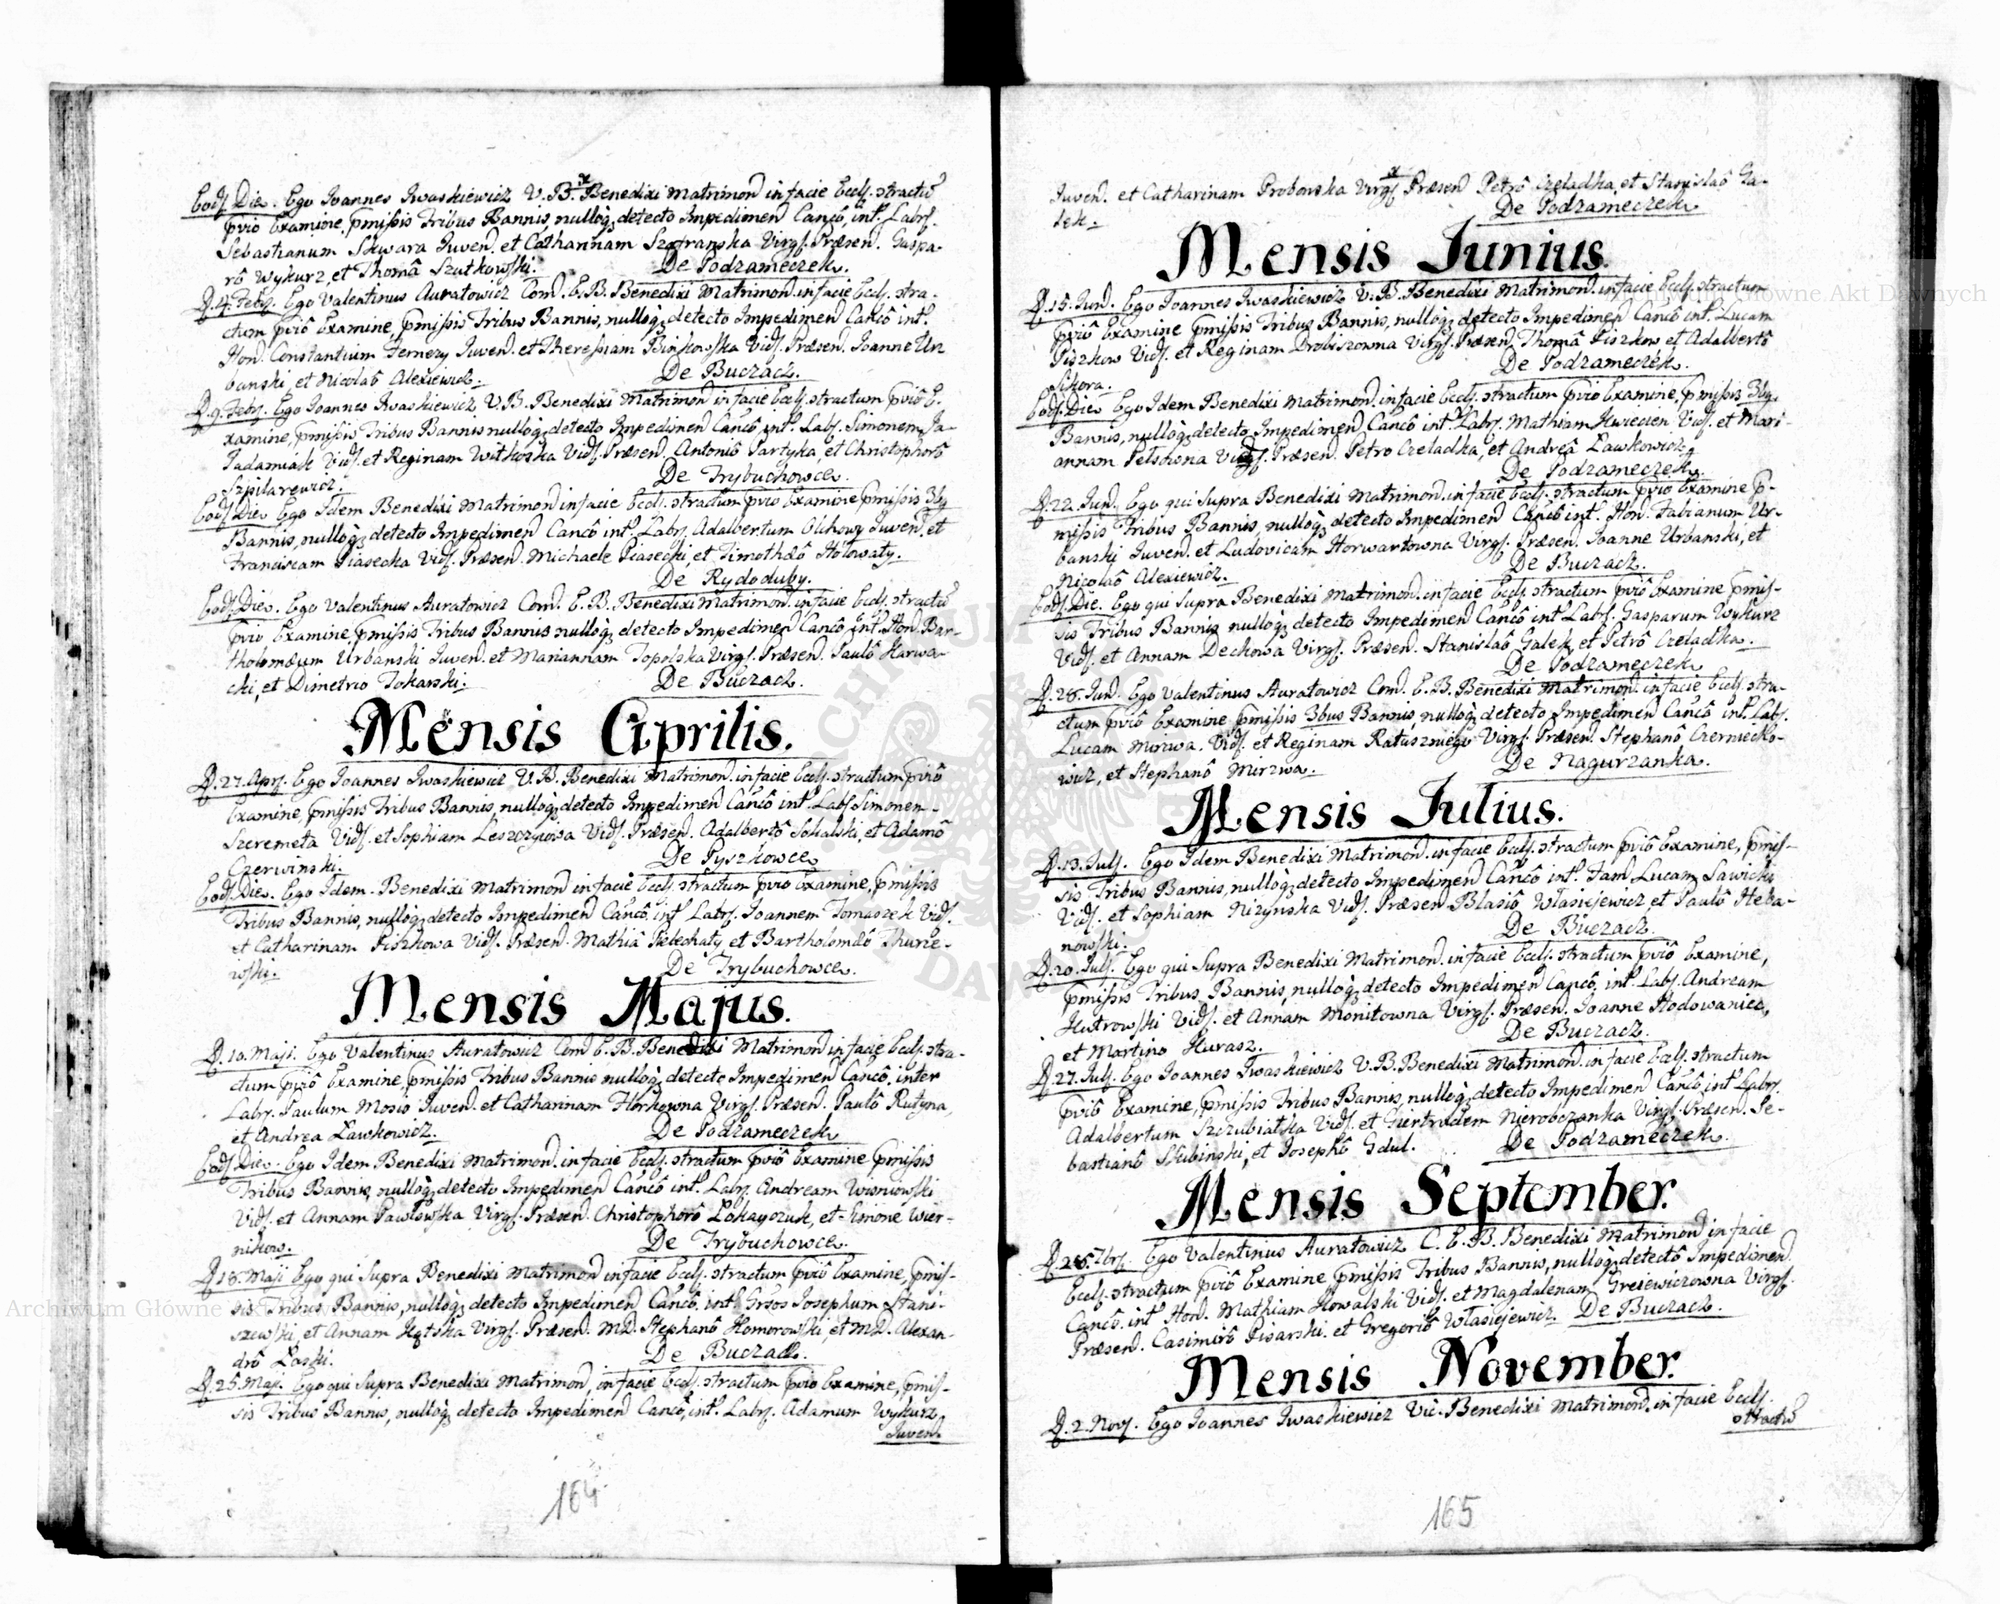 Eod. Die. Ego Joannes Iwaskiewicz V. B. Benedixi Matrimon in facie Eccls. stractū
prvio Examine, pmissis Tribus Bannis, nulloq; detecto Impedimen Canco, int. Labs.
Sebastianum Skwara Juven. et Catharinam Szafranska Virgs. Præsen. Gaspa-
rô Wykurz, et Thomâ Szutkowski.
De Podzameczek.
D. 4. Febs. Ego Valentinus Auratowicz Com. E. B. Benedixi Matrimon. in facie Eccls. stra-
ctum prviô Examine, pmissis Tribus Bannis, nulloq; detecto Impedimen Cancô int.
Hon. Constantium Juven. et Theressiam Binkowska Vids. Præsen. Joanne Ur
banski, et Nicolaô Alexiewicz.
De Buczacz.
D. 9. Febs. Ego Joannes Iwaskiewicz V. B. Benedixi Matrimon in facie Eccls. stractum prviô E-
xamine, pmissis Tribus Bannis nulloq; detecto Impedimen Cancô int. Labs. Simonem Ja-
Jadamiak Vids. et Reginam Witkoska Vids. Præsen. Antoniô Partyka, et Christophorô
Szpilarewicz.
De Trybuchowce.
Eods. Die. Ego Idem Benedixi Matrimon in facie Eccls. stractum prvio Examine pmissis 3bq
Bannis, nulloq; detecto Impedimen Cancô int. Labs. Adalbertum Olchowy Juven. et
Franciscam Piasecka Vids. Præsen. Michaele Piasecki, et Timotheô Holowaty.
De Rydoduby.
Eods. Die. Ego Valentinus Auratowicz Com. E. B. Benedixi Matrimon. in facie Eccls. stractū
prvio Examine, pmissis Tribus Bannis nulloq; detecto Impedimen Cancô int. Hon. Bar-
tholomæum Urbanski Juven. et Mariannam Topolska Virgs. Præsen. Paulô Harwa-
cki, et Dimetrio Tokarski.
De Buczacz.
Mensis Aprilis.
D. 27. Aprs. Ego Joannes Iwaskiewicz V. B. Benedixi Matrimon. in facie Eccls. stractum prviô
Examine, pmissis Tribus Bannis, nulloq; detecto Impedimen Cancô int. Labs. Simonem
Szeremeta Vids. et Sophiam Vids. Præsen. Adalbertô Sokalski, et Adamô
Czerwinski.
De Pyszkowce
Eods. Die. Ego Idem Benedixi Matrimon in facie Eccls. stractum prvio Examine, pmissis
Tribus Bannis, nulloq; detecto Impedimen Cancô, int. Labs. Joannem Tomaszek Vids.
et Catharinam Piszkowa Vids. Præsen. Mathiâ Pielechaty et Bartholomæô Thurie-
wski.
De Trybuchowce.
Mensis Majus.
D. 10. Maji. Ego Valentinus Auratowicz Com E. B. Benedixi Matrimon in facie Eccls. stra-
ctum prviô Examine, pmissis Tribus Bannis nulloq; detecto Impedimen Cancô. inter
Labs. Paulum Mosio Juven. et Catharinam Horkowna Virgs. Præsen. Paulô Rutyna,
et Andrea Ławkowicz.
De Podzameczek
Eods. Die. Ego Idem Benedixi Matrimon. in facie Eccls. stractum prviô Examine pmissis
Tribus Bannis, nulloq; detecto Impedimen Cancô int. Labs. Andream Wisniowski
Vids. et Annam Pawłowska Virgs. Præsen. Christophorô Łokayczuk, et Simone Wier-
nikow.
De Trybuchowce.
D. 18. Maji Ego qui Supra Benedixi Matrimon in facie Eccls. stractum prviô Examine, pmis-
sis Tribus Bannis, nulloq; detecto Impedimen Cancô. int. Grsos Josephum Stani-
szewski, et Annam Virgs. Præsen. MD. Stephanô Homorowski, et MD. Alexan-
drô Łaski.
De Buczacz.
D. 25. Maji. Ego qui Supra Benedixi Matrimon, in facie Eccls. stractum prvio Examine, pmis-
sis Tribus Bannis, nulloq; detecto Impedimen Cancô, int. Labs. Adamum Wykurz
Juven.
164
Juven. et Catharinam Probowska Virgs. Præsen Petrô Czeladka, et Stanislaô Ga-
lek.
De Podzameczek
Mensis Junius.
D. 15. Jun. Ego Joannes Iwaskiewicz V. B. Benedixi Matrimon. in facie Eccls. stractum
prviô Examine pmissis Tribus Bannis, nulloq; detecto Impedimen Cancô int. Lucam
Piszkow Vids. et Reginam Drobiszowna Virgs. Præsen. Thomâ Piszkow et Adalbertô
Sikora.
De Podzameczek.
Eods. Die Ego Idem Benedixi Matrimon. in facie Eccls. stractum prvio Examine, pmissis 3bq.
Bannis, nulloq; detecto Impedimen Cancô int. Labs. Mathiam Kwiecien Vids. et Mari-
annam Pelschona Virgs. Præsen. Petro Czeladka, et Andreâ Ławkowicz.
De Podzameczek.
D. 22. Jun. Ego qui Supra Benedixi Matrimon. in facie Eccls. stractum prviô Examine p-
missis Tribus Bannis, nulloq; detecto Impedimen Cancô int. Hon. Fabianum Ur-
banski Juven. et Ludovicam Horwartowna Virgs. Præsen. Joanne Urbanski, et
Nicolaô Alexiewicz.
De Buczacz.
Eods. Die. Ego qui Supra Benedixi Matrimon. in facie Eccls. stractum prviô Examine pmis-
sis Tribus Bannis nulloq; detecto Impedimen Cancô int. Labs. Gasparum Wykurz
Vids. et Annam Dechowa Virgs. Præsen. Stanislaô Galek, et Petrô Czeladka.
De Podzameczek
D. 28. Jun. Ego Valentinus Auratowicz Com. E. B. Benedixi Matrimon. in facie Eccls. stra-
ctum prviô Examine pmissis 3bus Bannis, nulloq; detecto Impedimen Cancô int. Labs.
Lucam Mirzwa. Vids. et Reginam Virgs. Præsen. Stephanô Czerniecko-
wicz, et Stephanô Mirzwa.
De Nagurzanka.
Mensis Julius.
D. 13. Juls. Ego Idem Benedixi Matrimon. in facie Eccls. stractum prviô Examine, pmis-
sis Tribus Bannis, nulloq; detecto Impedimen Cancô int. Fam Lucam Sawicki
Vids. et Sophiam Nizynska Vids. Præsen. Blasiô Wlasiejewicz et Paulô Heba-
nowski.
De Buczacz.
D. 20. Juls. Ego qui Supra Benedixi Matrimon. in facie Eccls. stractum prviô Examine,
pmissis Tribus Bannis, nulloq; detecto Impedimen Cancô. int. Labs. Andream
Kutrowski Vids. et Annam Monitowna Virgs. Præsen. Joanne Hodowaniec,
et Martino Kurasz.
De Buczacz.
D. 27. Juls. Ego Joannes Iwaskiewicz V. B. Benedixi Matrimon. in facie Eccls. stractum
prviô Examine, pmissis Tribus Bannis, nulloq; detecto Impedimen Cancô int Labs.
Adalbertum Szczubiatka Vids. et Giertrudem Nierobczanka Virgs. Præsen. Se-
bastianô Skibinski, et Josephô Gdul.
De Podzameczek.
Mensis September.
D. 7brs. Ego Valentinus Auratowicz C. E. B. Benedixi Matrimon in facie
Eccls. stractum prviô Examine pmissis Tribus Bannis, nulloq; detectô Impedimen
Cancô. int. Hon. Mathiam Kowalski Vids. et Magdalenam Gresiewiczowna Virgs.
Præsen. Casimirô Pisarski. et Gregoriô Wlasiejewicz. De Buczacz.
Mensis November.
D. 2. Novs. Ego Joannes Iwaskiewicz Vic. Benedixi Matrimon. in facie Eccls.
stractū
165
Archiwum Główne Akt Dawnych